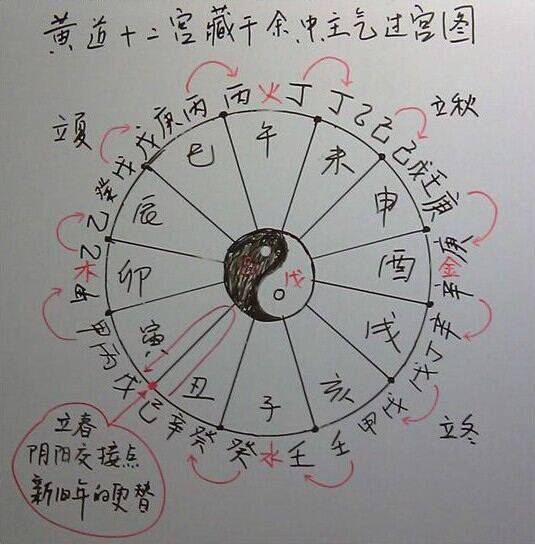 黄道十二宫藏干余中主气过宫图
丙 火 丁
丁 乙 己
立秋
己 戊 壬 庚
庚 金 辛
辛 丁 戊
立冬
戊 甲 壬
壬 水 癸
癸 辛 己
戊 丙 甲
甲 木 乙
乙 癸 戊
立夏
戊 庚 丙
午
未
申
酉
戌
亥
子
丑
寅
卯
辰
巳
戊
立春
阴阳交接点
新旧年的更替